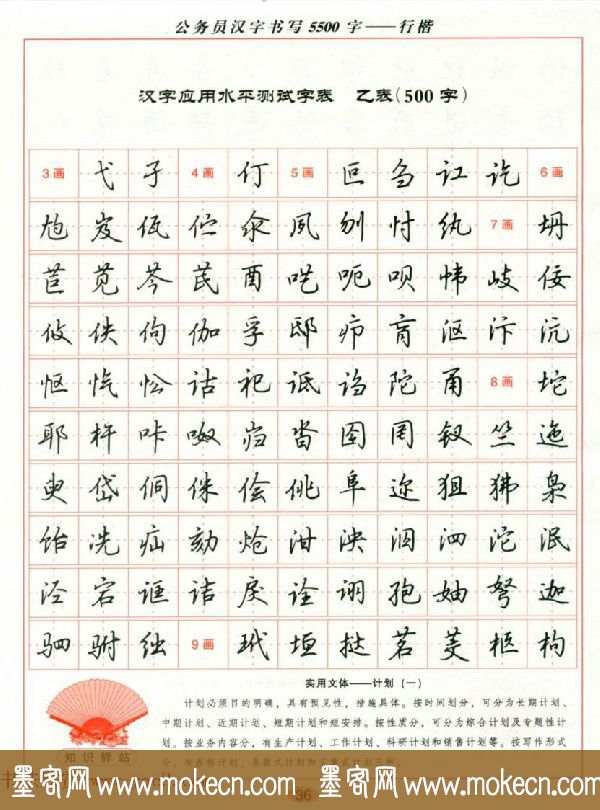 公务员汉字书写5500字——行楷
汉字应用水平测试字表 乙表(500字)
3画 弋 孑 4画 仃 5画 叵 刍 讧 讫 6画
尥 岌 佤 伫 汆 夙 刎 忖 纨 7画 坍
苣 苋 芩 芪 酉 呓 呃 呗 帏 岐 佞
攸 佚 佝 伽 孚 邸 疖 肓 沤 汴 沅
怄 忾 忪 诂 祀 诋 诌 陀 甬 8画 坨
耶 杵 咔 呶 岿 沓 囹 罔 钗 竺 迤
臾 岱 侗 侏 侩 佻 阜 迩 狙 狒 枭
饴 冼 疝 劾 炝 泔 泱 泅 泗 沱 泯
泾 宕 诓 诘 戾 诠 诩 孢 妯 弩 迦
驷 驸 绌 9画 玳 垣 挞 茗 荚 柩 枸
实用文体——计划(一)
计划必须目的明确,具有预见性,措施具体。按时间划分,可分为长期计划、
中期计划、近期计划、短期计划和短安排。按性质分,可分为综合计划及专题性计
划。按业务内容分,有生产计划、工作计划、科研计划和销售计划等。按写作形式
分,有表格计划、条款式计划和文章式计划三种。
知识驿站
36
墨客网 www.mokecn.com 墨客网 www.mokecn.com